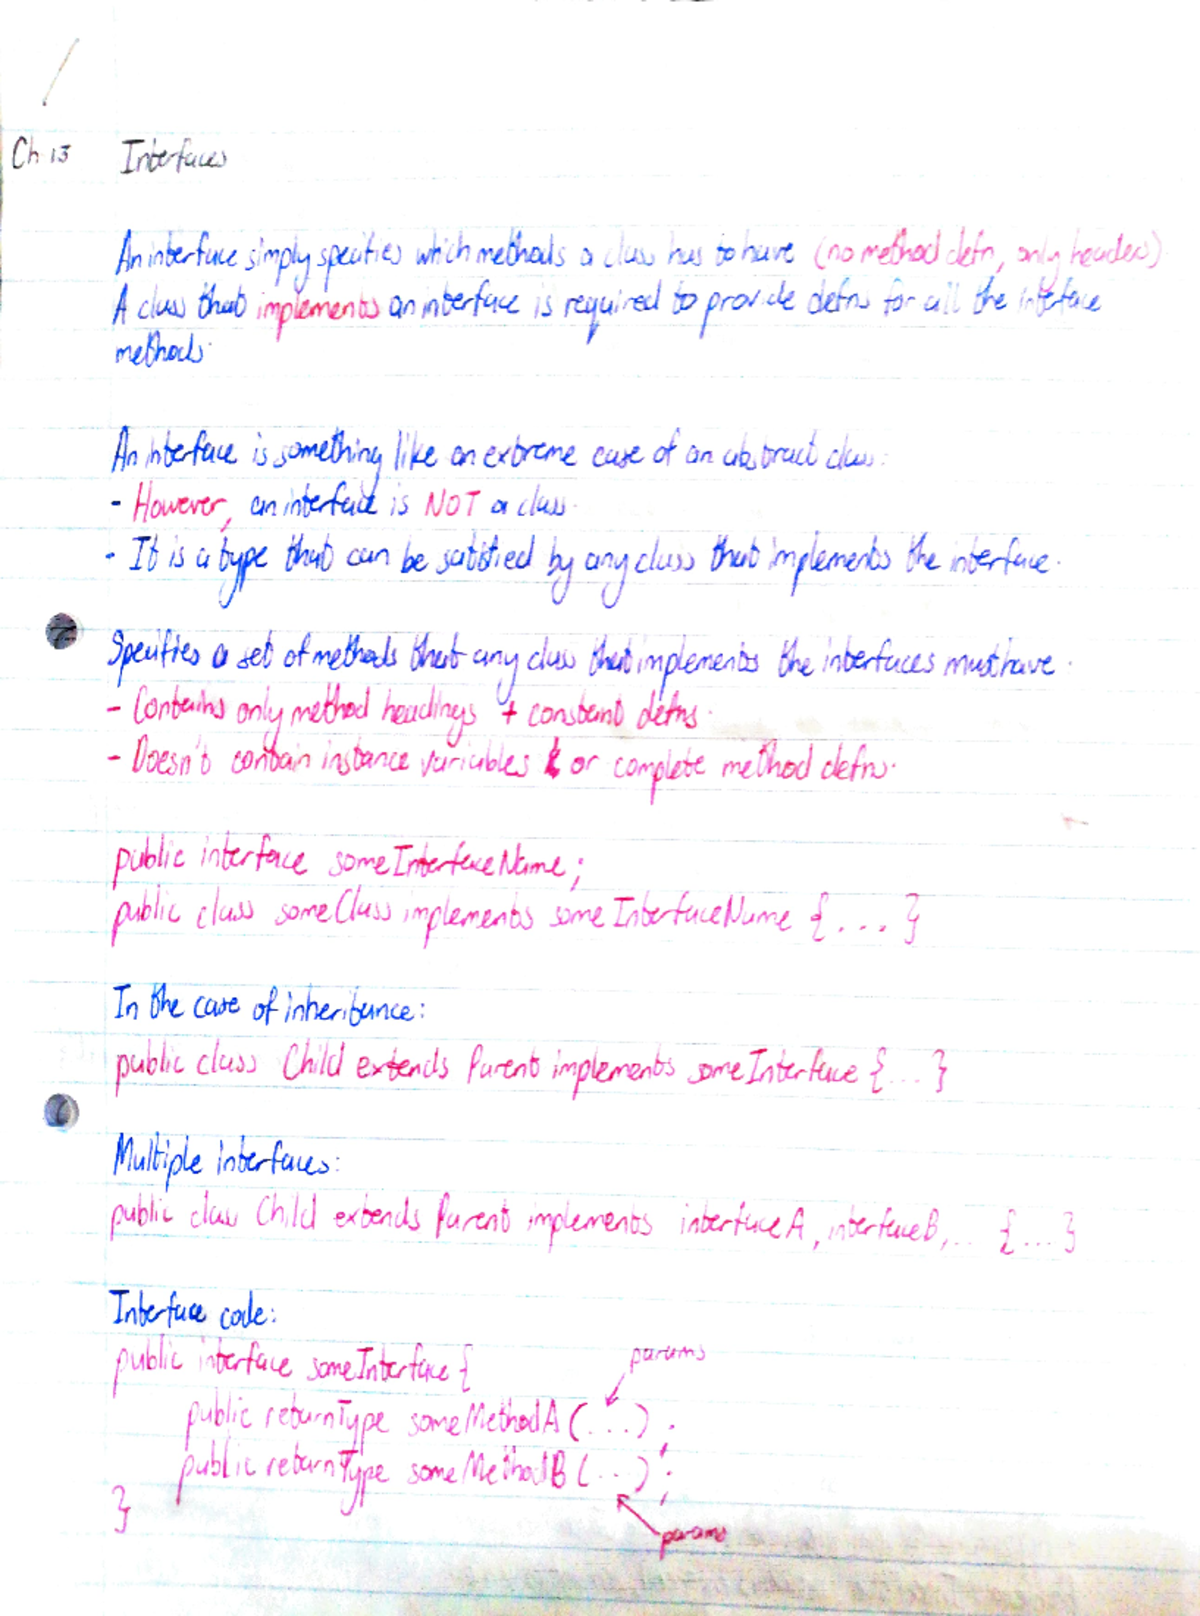 Ch 13 Interfaces
An interface simply specifies which methods a class has to have (no method defn, only headers)
A class that implements an interface is required to provide defns for all the interface
methods.
An interface is something like an extreme case of an abstract class:
- However, an interface is NOT a class.
- It is a type that can be satisfied by any class that implements the interface.
Specifies a set of methods that any class that implements the interfaces must have.
- Contains only method headings + constant defns.
- Doesn't contain instance variables or complete method defns.
public interface someInterfaceName;
public class someClass implements someInterfaceName {...}
In the case of inheritance:
public class Child extends Parent implements someInterface {...}
Multiple interfaces:
public class Child extends Parent implements interfaceA, interfaceB,... {...}
Interface code:
public interface someInterface {
params
public returnType someMethodA (...);
public returnType someMethodB (...);
}
params